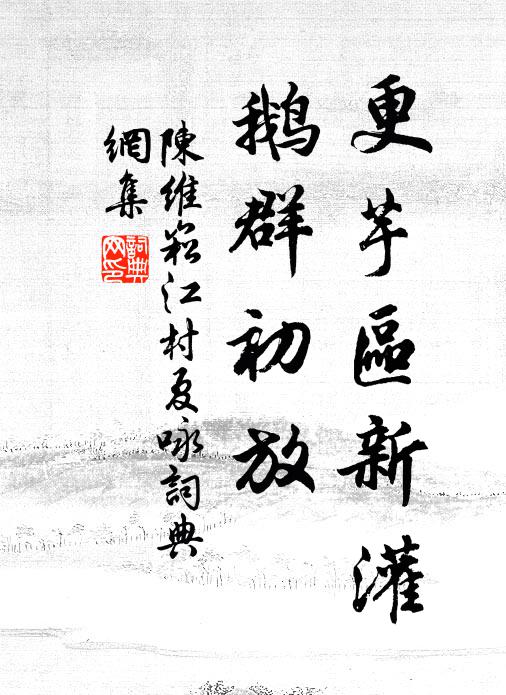 更芋區新灌
鵝群初放
陳維崧江村夏咏詞典
網集
詞典
网印